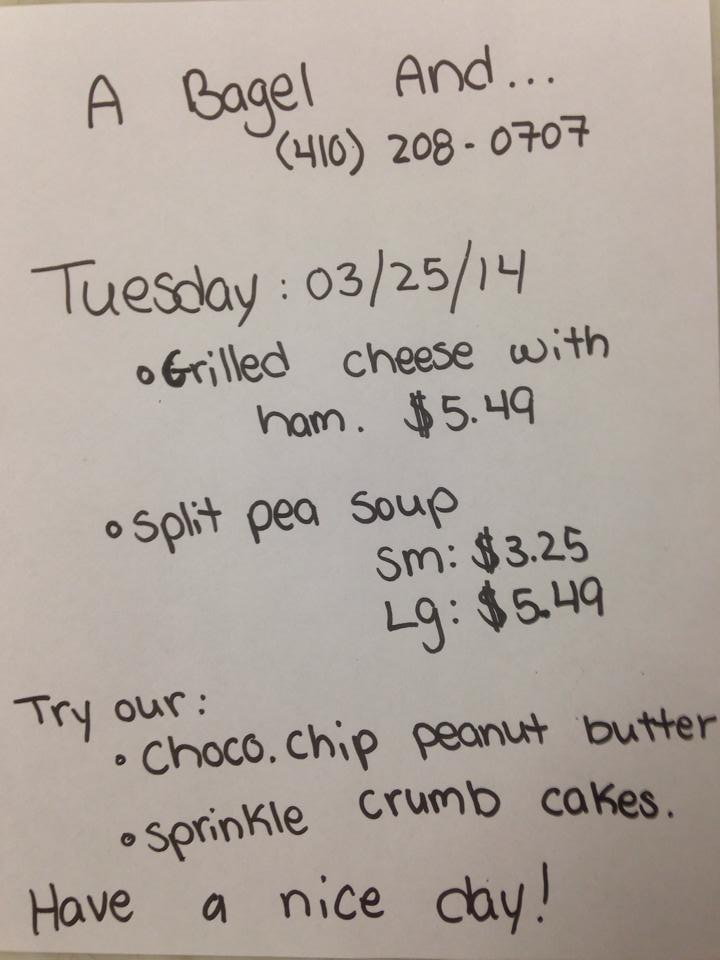 A Bagel And...
(410) 208-0707
Tuesday: 03/25/14
• Grilled cheese with
ham. $5.49
• Split pea soup
Sm: $3.25
Lg: $5.49
Try our:
• Choco. chip peanut butter
• sprinkle crumb cakes.
Have a nice day!